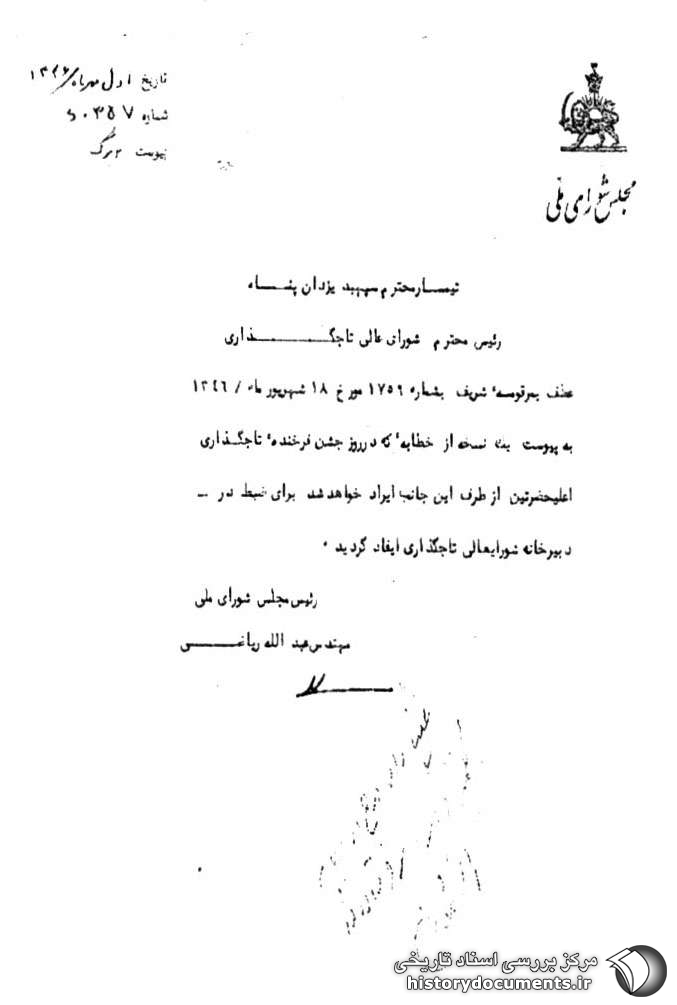 مجلس شورای ملی
تاریخ اول مهرماه ۱۳۴۶
شماره
پیوست ۳ برگ
تیمسار محترم سپهبد یزدان پناه
رئیس محترم شورای عالی تاجگذاری
عطف بمرقومهٔ شریف بشماره ۱۷۵۹ مورخ ۱۸ شهریور ماه / ۱۳٤٦
به پیوست یک نسخه از خطابهٔ که در روز جشن فرخندهٔ تاجگذاری
اعلیحضرتین از طرف این جانب ایراد خواهد شد برای ضبط در —
دبیرخانه شورایعالی تاجگذاری ایفاد گردید .
رئیس مجلس شورای ملی
مهندس عبدالله ریاضی
مرکز بررسی اسناد تاریخی
historydocuments.ir